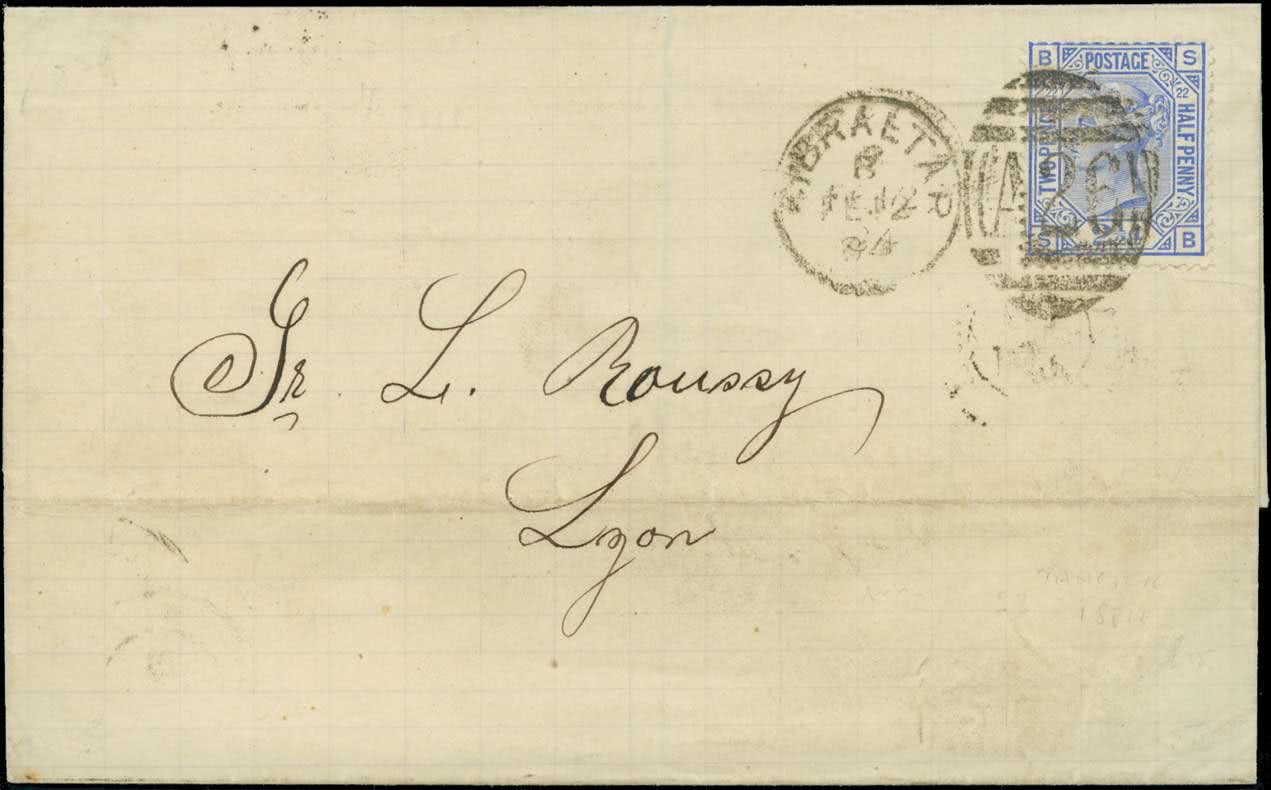 B POSTAGE S
22
HALF PENNY
TWO PENCE
S B
A26
GIBRALTAR
B
FE 12
84
Sr. L. Roussy
Lyon